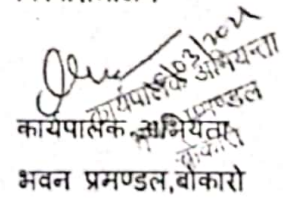 16/03/2021
कार्यपालक अभियन्ता
प्रमण्डल
बोकारो
कार्यपालक अभियंता
भवन प्रमण्डल,बोकारो